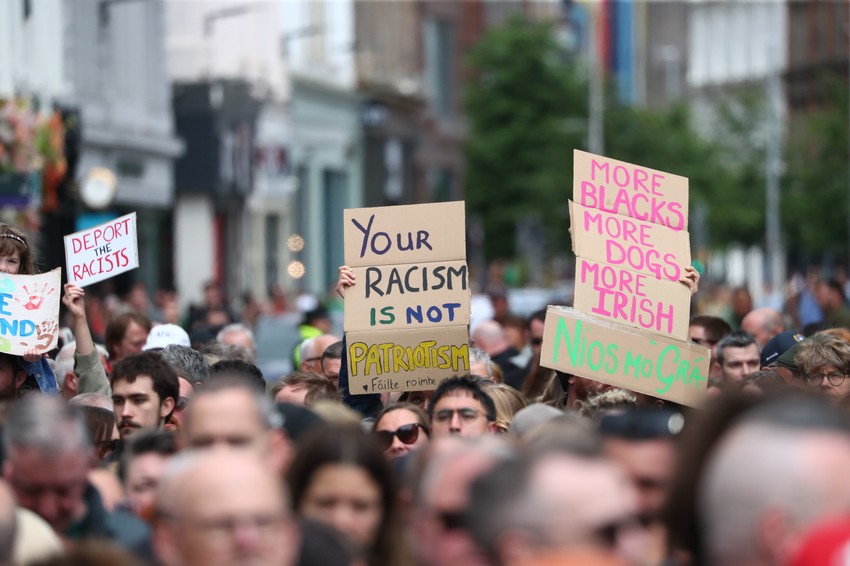 DEPORT
THE
RACISTS
YOUR
RACISM
IS NOT
PATRIOTISM
Fáilte roimhe
MORE
BLACKS
MORE
DOGS
MORE
IRISH
Níos mo Grá